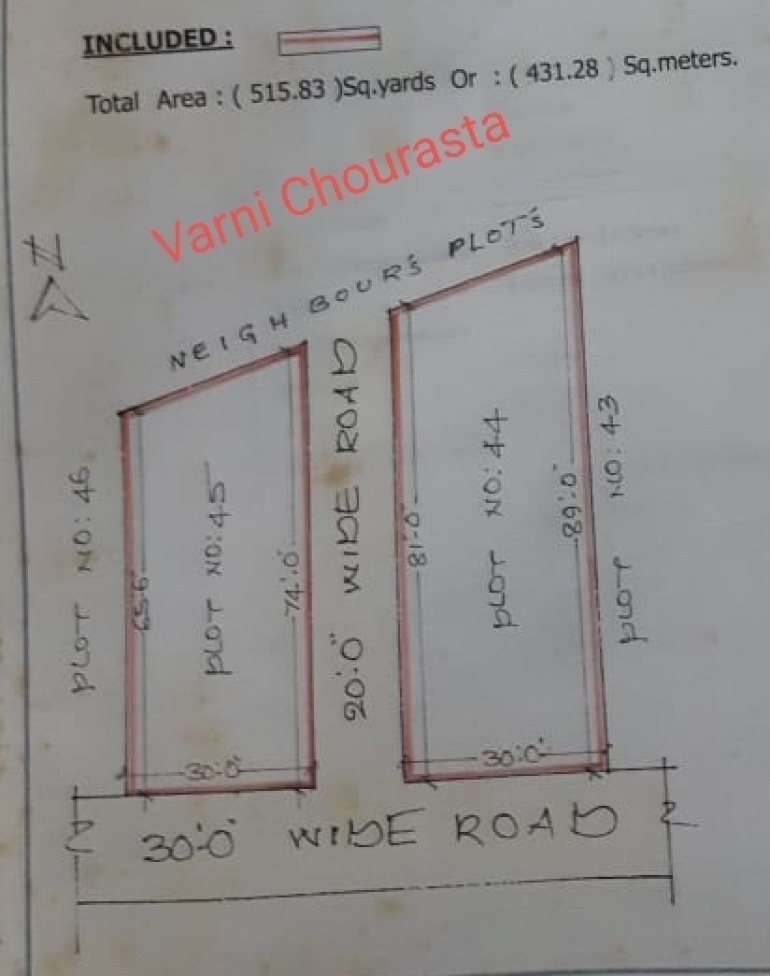 INCLUDED :
Total Area : ( 515.83 )Sq.yards Or : ( 431.28 ) Sq.meters.
Varni Chourasta
N
NEIGHBOUR'S PLOT'S
PLOT NO: 46
65'.6"
PLOT NO: 45
74'.0"
20'.0" WIDE ROAD
81'.0"
PLOT NO: 44
89'.0"
PLOT NO: 43
30'.0"
30'.0"
30'.0" WIDE ROAD